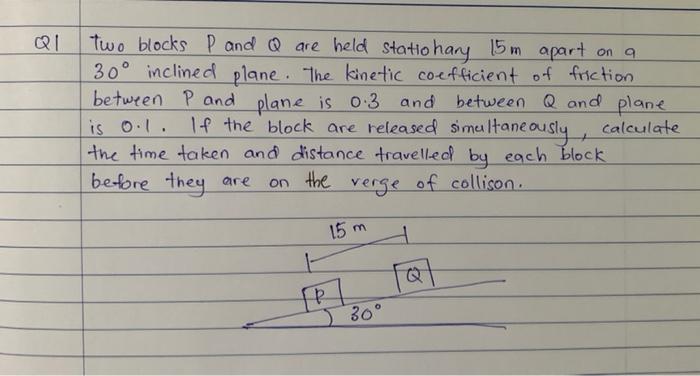 Q1 Two blocks P and Q are held stationary 15m apart on a
30° inclined plane. The kinetic coefficient of friction
between P and plane is 0.3 and between Q and plane
is 0.1. If the block are released simultaneously, calculate
the time taken and distance travelled by each block
before they are on the verge of collison.
15 m
Q
P
30°